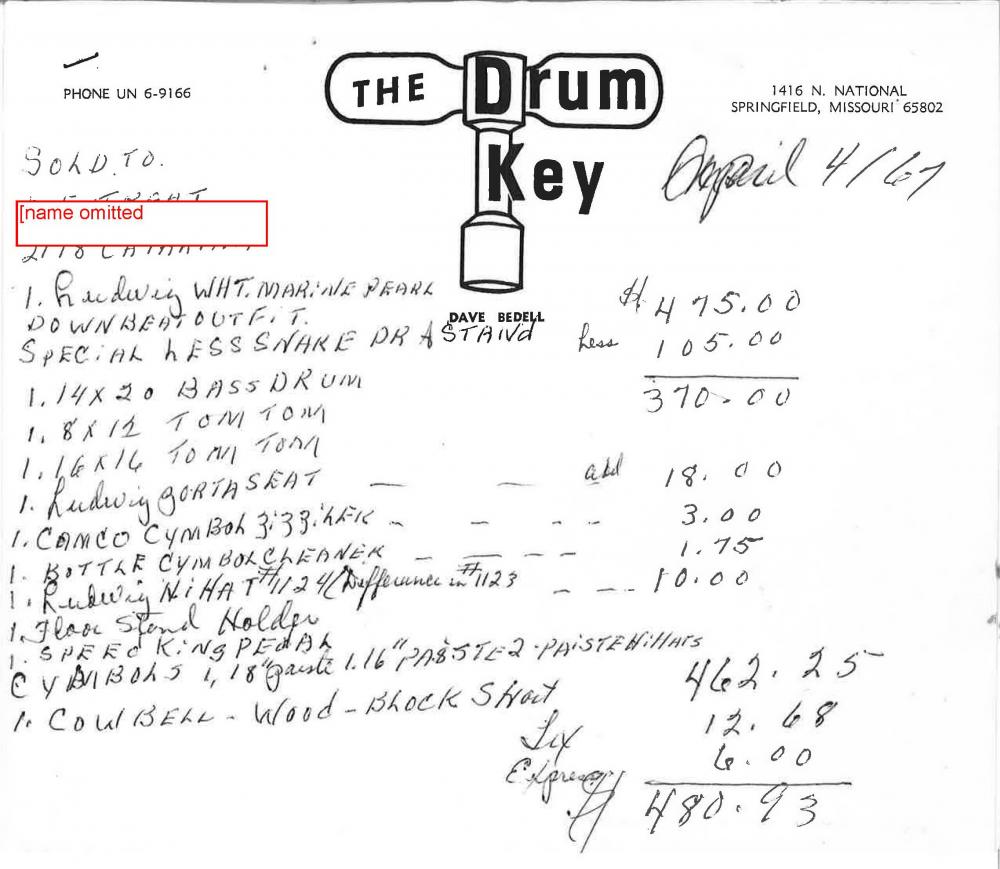 PHONE UN 6-9166
THE Drum Key
1416 N. NATIONAL
SPRINGFIELD, MISSOURI 65802
April 4/67
SOLD. TO.
[name omitted
DAVE BEDELL
1. Ludwig WHT. MARINE PEARL $ 475.00
DOWNBEAT OUTFIT.
SPECIAL LESS SNARE DR & STAND Less 105.00
370.00
1. 14X20 BASS DRUM
1. 8X12 TOM TOM
1. 16X16 TOM TOM
1. Ludwig PORTASEAT — — add 18.00
1. CAMCO CYMBOL - - - - 3.00
1. BOTTLE CYMBOL CLEANER — — - - 1.75
1. Ludwig HiHAT #1124 (Difference in #1123 - - - 10.00
1. Floor Stand Holder
1. SPEED KING PEDAL
CYMBOLS 1, 18" Paiste 1. 16" PAISTE 2 - PAISTE HiHats 462.25
1. COWBELL - Wood - BLOCK
Tax 12.68
Express 6.00
480.93